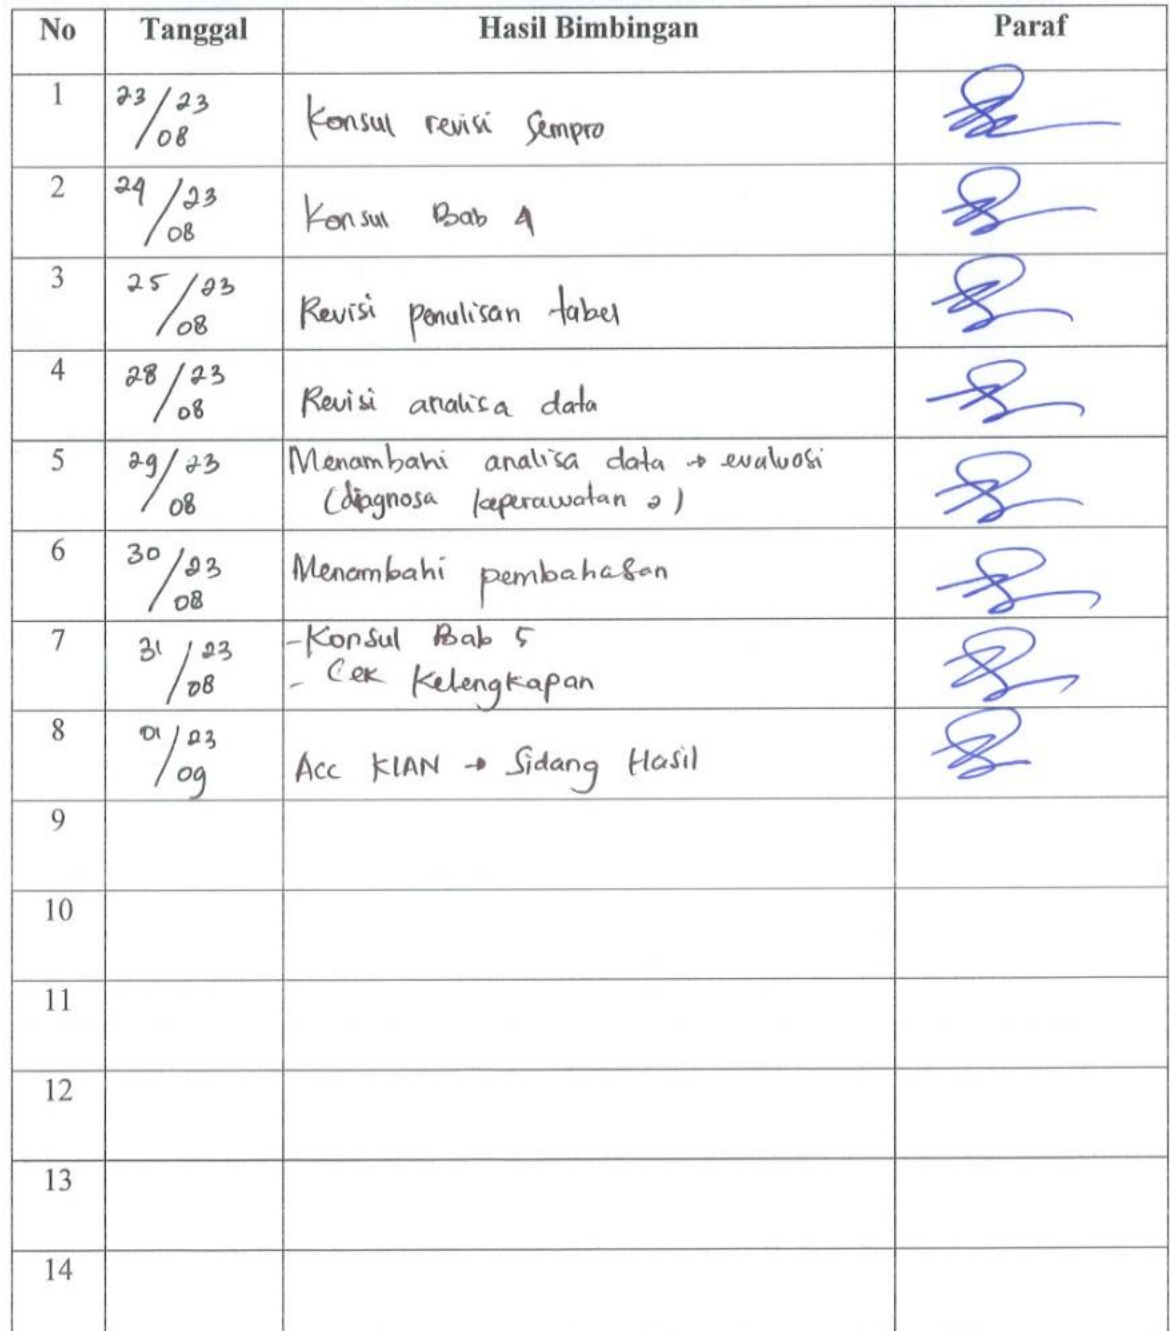 No Tanggal Hasil Bimbingan Paraf
1 23/23 08 Konsul revisi Sempro
2 24/23 08 Konsul Bab 4
3 25/23 08 Revisi penulisan tabel
4 28/23 08 Revisi analisa data
5 29/23 08 Menambahi analisa data → evaluasi
(diagnosa keperawatan 2)
6 30/23 08 Menambahi pembahasan
7 31/23 08 - Konsul Bab 5
- Cek Kelengkapan
8 01/23 09 Acc KIAN → Sidang Hasil
9
10
11
12
13
14